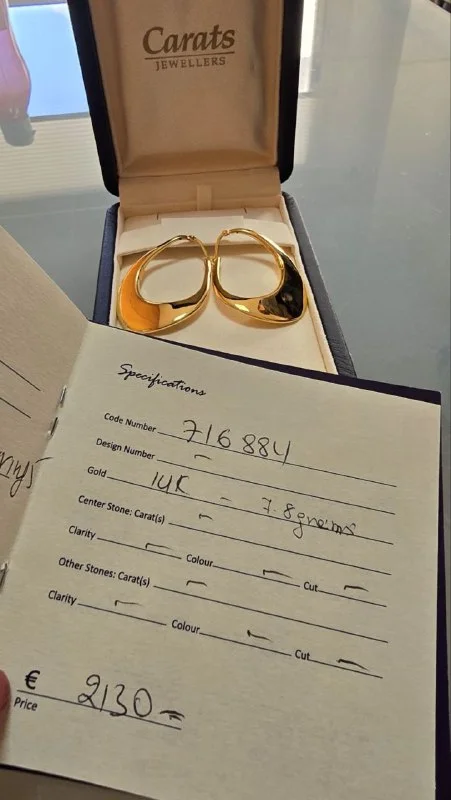 Carats
JEWELLERS
Specifications
Code Number 716884
Design Number –
Gold 14K – 7.8 grams
Center Stone: Carat(s) –
Clarity – Colour – Cut –
Other Stones: Carat(s) –
Clarity – Colour – Cut –
€ 2130=
Price